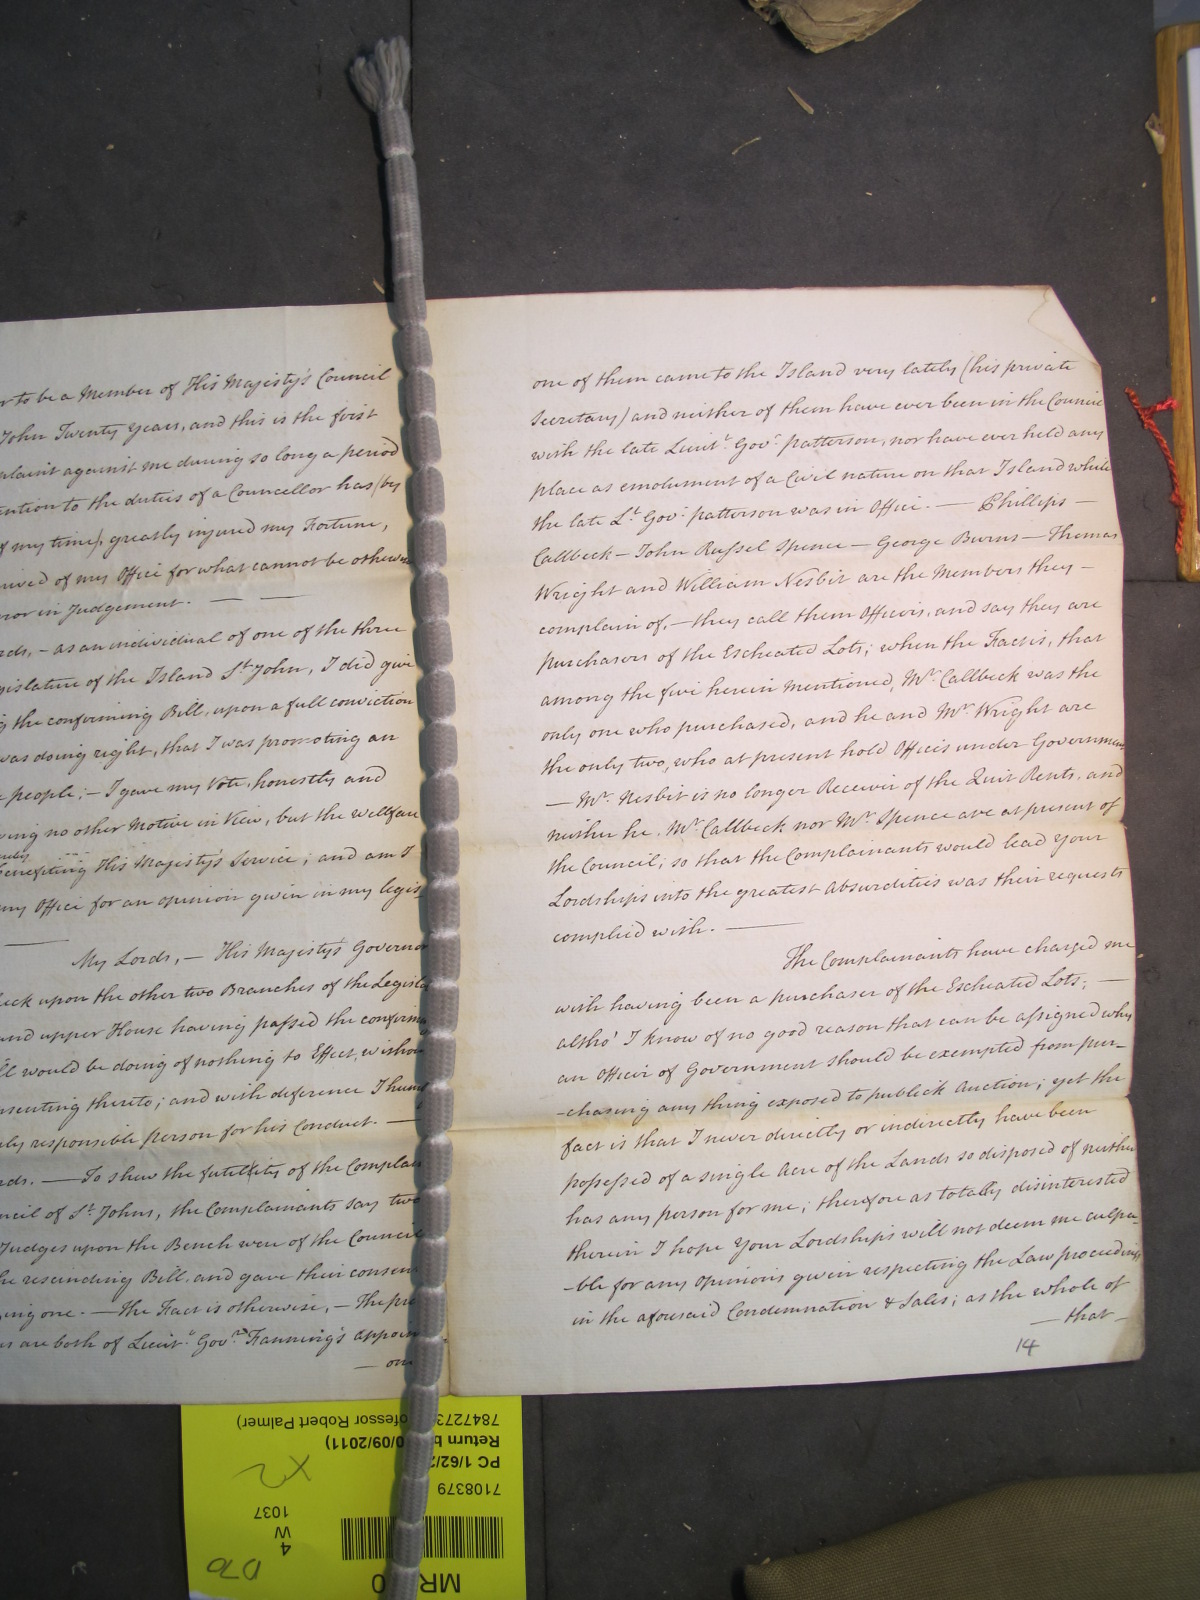 r to be a Member of His Majesty's Council
John Twenty Years, and this is the first
plaint against me during so long a period
ention to the duties of a Councellor has (by
f my time), greatly injured my Fortune,
rived of my Office for what cannot be otherwis
ror in Judgement. — —
rds, - as an individual of one of the three
gislature of the Island St John, I did give
g the confirming Bill, upon a full conviction
was doing right, that I was promoting an
people; - I gave my Vote, honestly and
ving no other Motive in View, but the wellfare
benefiting His Majesty's Service; and am I
my Office for an opinion given in my legis
My Lords, — His Majesty's Governor
eck upon the other two Branches of the Legisla
and upper House having passed the confirm
ll would be doing of nothing to Effect, withou
senting thereto; and with deference I hum
ly responsible person for his Conduct. —
rds. — To shew the futellity of the Complain
ncil of St. Johns, the Complainants say two
Judges upon the Bench were of the Council
he rescinding Bill, and gave their consen
ing one. — The Fact is otherwise, — The pre
s are both of Lieut. Govr. Fanning's appoin
— one
one of them came to the Island very lately (his private
Secretary) and neither of them have ever been in the Council
with the late Lieut. Govr. patterson, nor have ever held any
place as emolument of a Civil nature on that Island while
the late Lt. Govr. patterson was in Office. — Phillips —
Callbeck — John Russel Spence — George Burns — Thomas
Wright and William Nesbit are the Members they —
complain of, — they call them Officers, and say they are
purchasers of the Escheated Lots; when the Fact is, that
among the five herein Mentioned, Mr. Callbeck was the
only one who purchased, and he and Mr. Wright are
the only two, who at present hold Offices under Governmen
— Mr. Nesbit is no longer Receiver of the Quit Rents, and
neither he, Mr. Callbeck nor Mr Spence are at present of
the Council; so that the Complainants would lead your
Lordships into the greatest absurdities was their requests
complied with. —
The Complainants have charged me
with having been a purchaser of the Escheated Lots; —
altho' I know of no good reason that can be assigned why
an Officer of Government should be exempted from pur-
-chasing any thing exposed to publick Auction; yet the
fact is that I never directly or indirectly have been
possessed of a single Acre of the Lands so disposed of neither
has any person for me; therefore as totally disinterested
therein I hope Your Lordships will not deem me culpa-
-ble for any Opinions given respecting the Law proceedings
in the aforesaid Condemnation & Sales; as the whole of
— that —
14
MR
0
D70
4
W
1037
7108379
X2
PC 1/62/2
Return b
0/09/2011)
7847273
ofessor Robert Palmer)